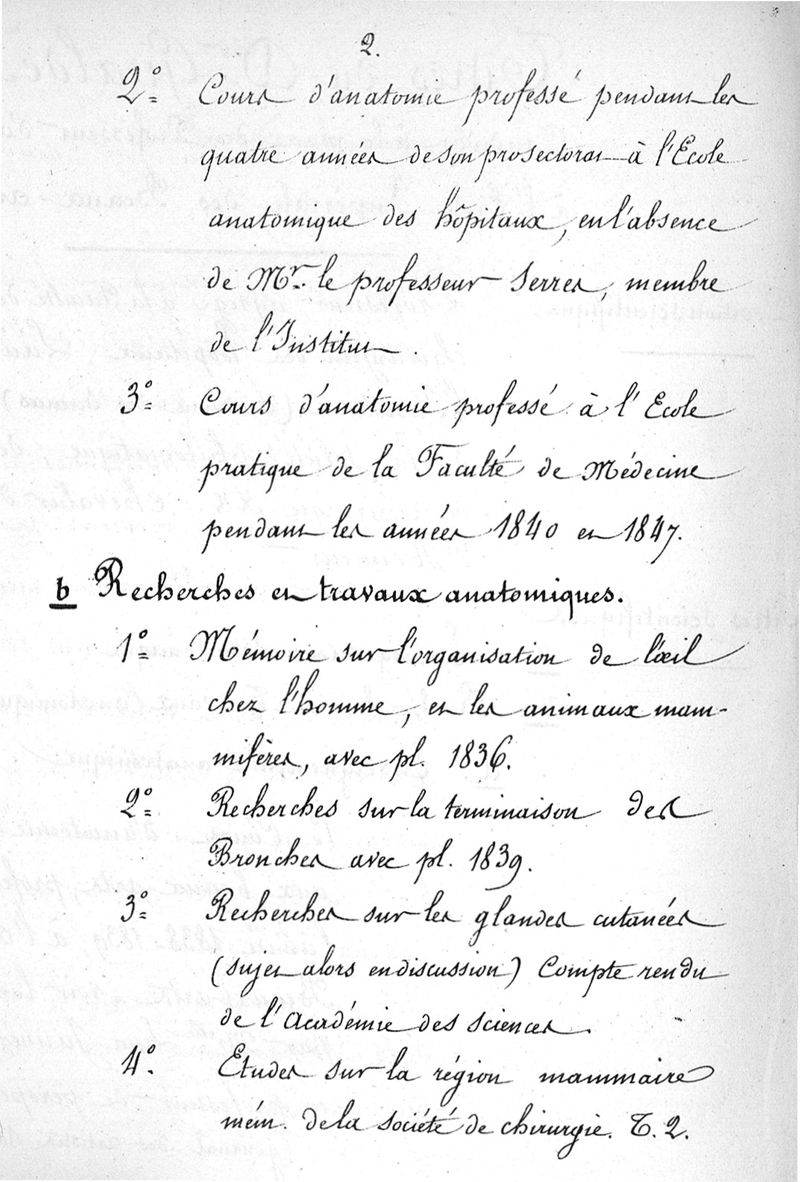 2.
2° Cours d'anatomie professé pendant les
quatre années de son prosectorat à l'Ecole
anatomique des hôpitaux, en l'absence
de Mr. le professeur Serres, membre
de l'Institut.
3° Cours d'anatomie professé à l'Ecole
pratique de la Faculté de Médecine
pendant les années 1840 et 1847.
b Recherches et travaux anatomiques.
1° Mémoire sur l'organisation de l'œil
chez l'homme, et les animaux mam-
mifères, avec pl. 1836.
2° Recherches sur la terminaison des
Bronches avec pl. 1839.
3° Recherches sur les glandes cutanées
(sujet alors en discussion) Compte rendu
de l'Académie des sciences.
4° Etudes sur la région mammaire
mém. de la société de chirurgie. T. 2.